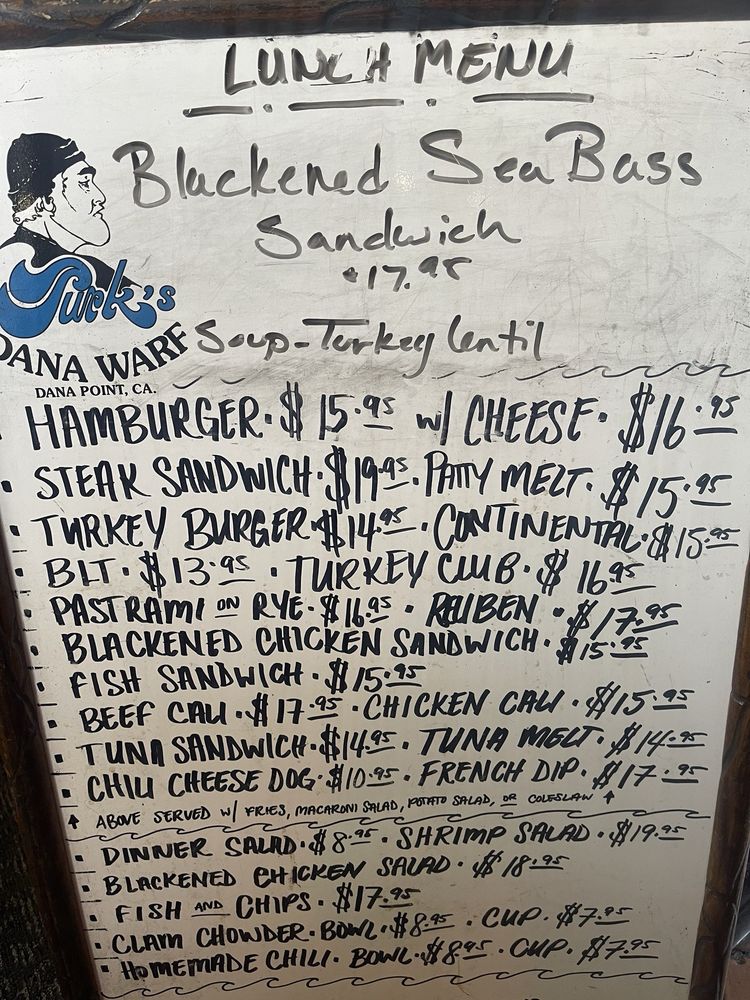 LUNCH MENU
Blackened Sea Bass
Sandwich
$17.95
Turk's
DANA WARF
DANA POINT, CA.
Soup-Turkey lentil
HAMBURGER · $15.95 w/ CHEESE · $16.95
· STEAK SANDWICH · $19.95 · PATTY MELT · $15.95
· TURKEY BURGER · $14.95 · CONTINENTAL · $15.95
· BLT · $13.95 · TURKEY CLUB · $16.95
· PASTRAMI ON RYE · $16.95 · REUBEN · $17.95
· BLACKENED CHICKEN SANDWICH · $15.95
· FISH SANDWICH · $15.95
· BEEF CALI · $17.95 · CHICKEN CALI · $15.95
· TUNA SANDWICH · $14.95 · TUNA MELT · $14.95
· CHILI CHEESE DOG · $10.95 · FRENCH DIP · $17.95
↑ ABOVE SERVED W/ FRIES, MACARONI SALAD, POTATO SALAD, OR COLESLAW ↑
· DINNER SALAD · $8.95 · SHRIMP SALAD · $19.95
· BLACKENED CHICKEN SALAD · $18.95
· FISH AND CHIPS · $17.95
· CLAM CHOWDER · BOWL · $8.95 · CUP · $7.95
· HOMEMADE CHILI · BOWL · $8.95 · CUP · $7.95